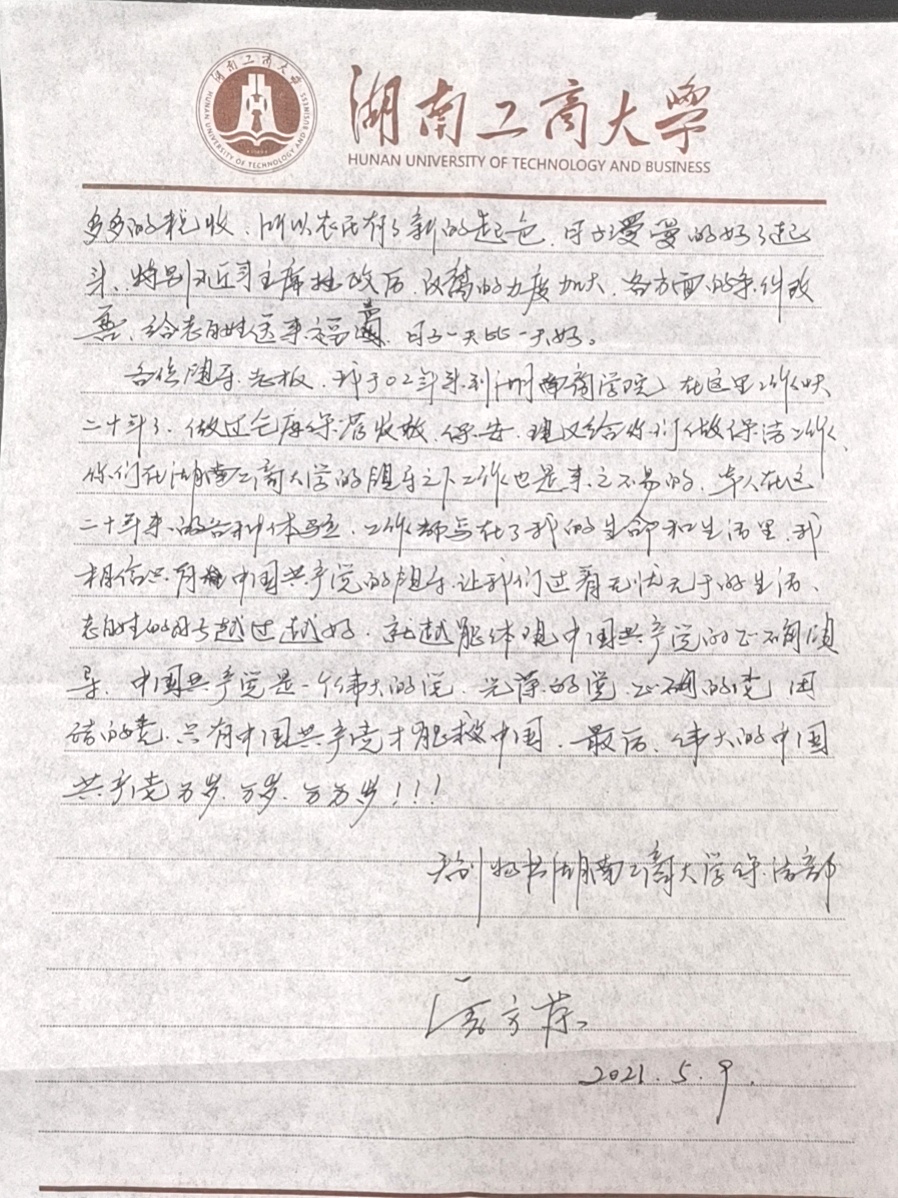 湖南工商大学
HUNAN UNIVERSITY OF TECHNOLOGY AND BUSINESS
湖南工商大学
HUNAN UNIVERSITY OF TECHNOLOGY AND BUSINESS
多多的税收、所以农民有了新的起色、日子漫漫的好了起
来、特别是近习主席执政后、改革的力度加大、各方面的条件改
善、给老百姓送来福音、日子一天比一天好。
各位领导、老板、我于02年来到湖南商学院、在这里工作快
二十年了、做过仓库保管收发、保安、现又给你们做保洁工作、
你们在湖南工商大学的领导之下工作也是来之不易的、本人在这
二十年来的各种体验、工作都写在了我的生命和生活里、我
相信只有中国共产党的领导、让我们过着无忧无于的生活、
老百姓的日子越过越好、就越能体现中国共产党的正确领
导、中国共产党是一个伟大的党、光荣的党、正确的党、团
结的党、只有中国共产党才能救中国、最后、伟大的中国
共产党万岁、万岁、万万岁！！！
湖南工商大学保洁部
方荣
2021.5.9.